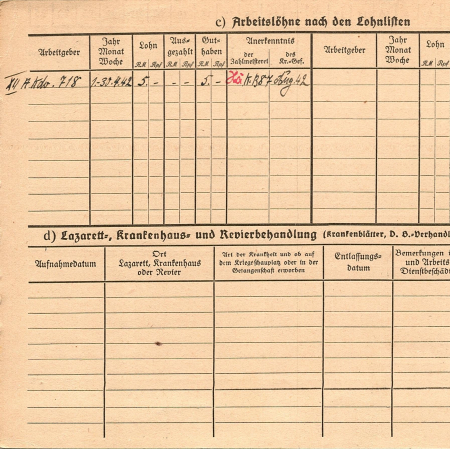 c) Arbeitslöhne nach den Lohnlisten
Arbeitgeber
Jahr
Monat
Woche
Lohn
RM Rpf
Aus-
gezahlt
RM Rpf
Gut-
haben
RM Rpf
Anerkenntnis
der
Zahlmeisterei
des
Kr.-Gef.
Arbeitgeber
Jahr
Monat
Woche
Lohn
RM Rpf
A. Kdo. 718 1-30.4.42 5. - - - 5. -
d) Lazarett-, Krankenhaus- und Revierbehandlung (Krankenblätter, D. B.-Verhandl
Aufnahmedatum
Ort
Lazarett, Krankenhaus
oder Revier
Art der Krankheit und ob auf
dem Kriegsschauplatz oder in der
Gefangenschaft erworben
Entlassungs-
datum
Bemerkungen
und Arbeits
Dienstbeschäd